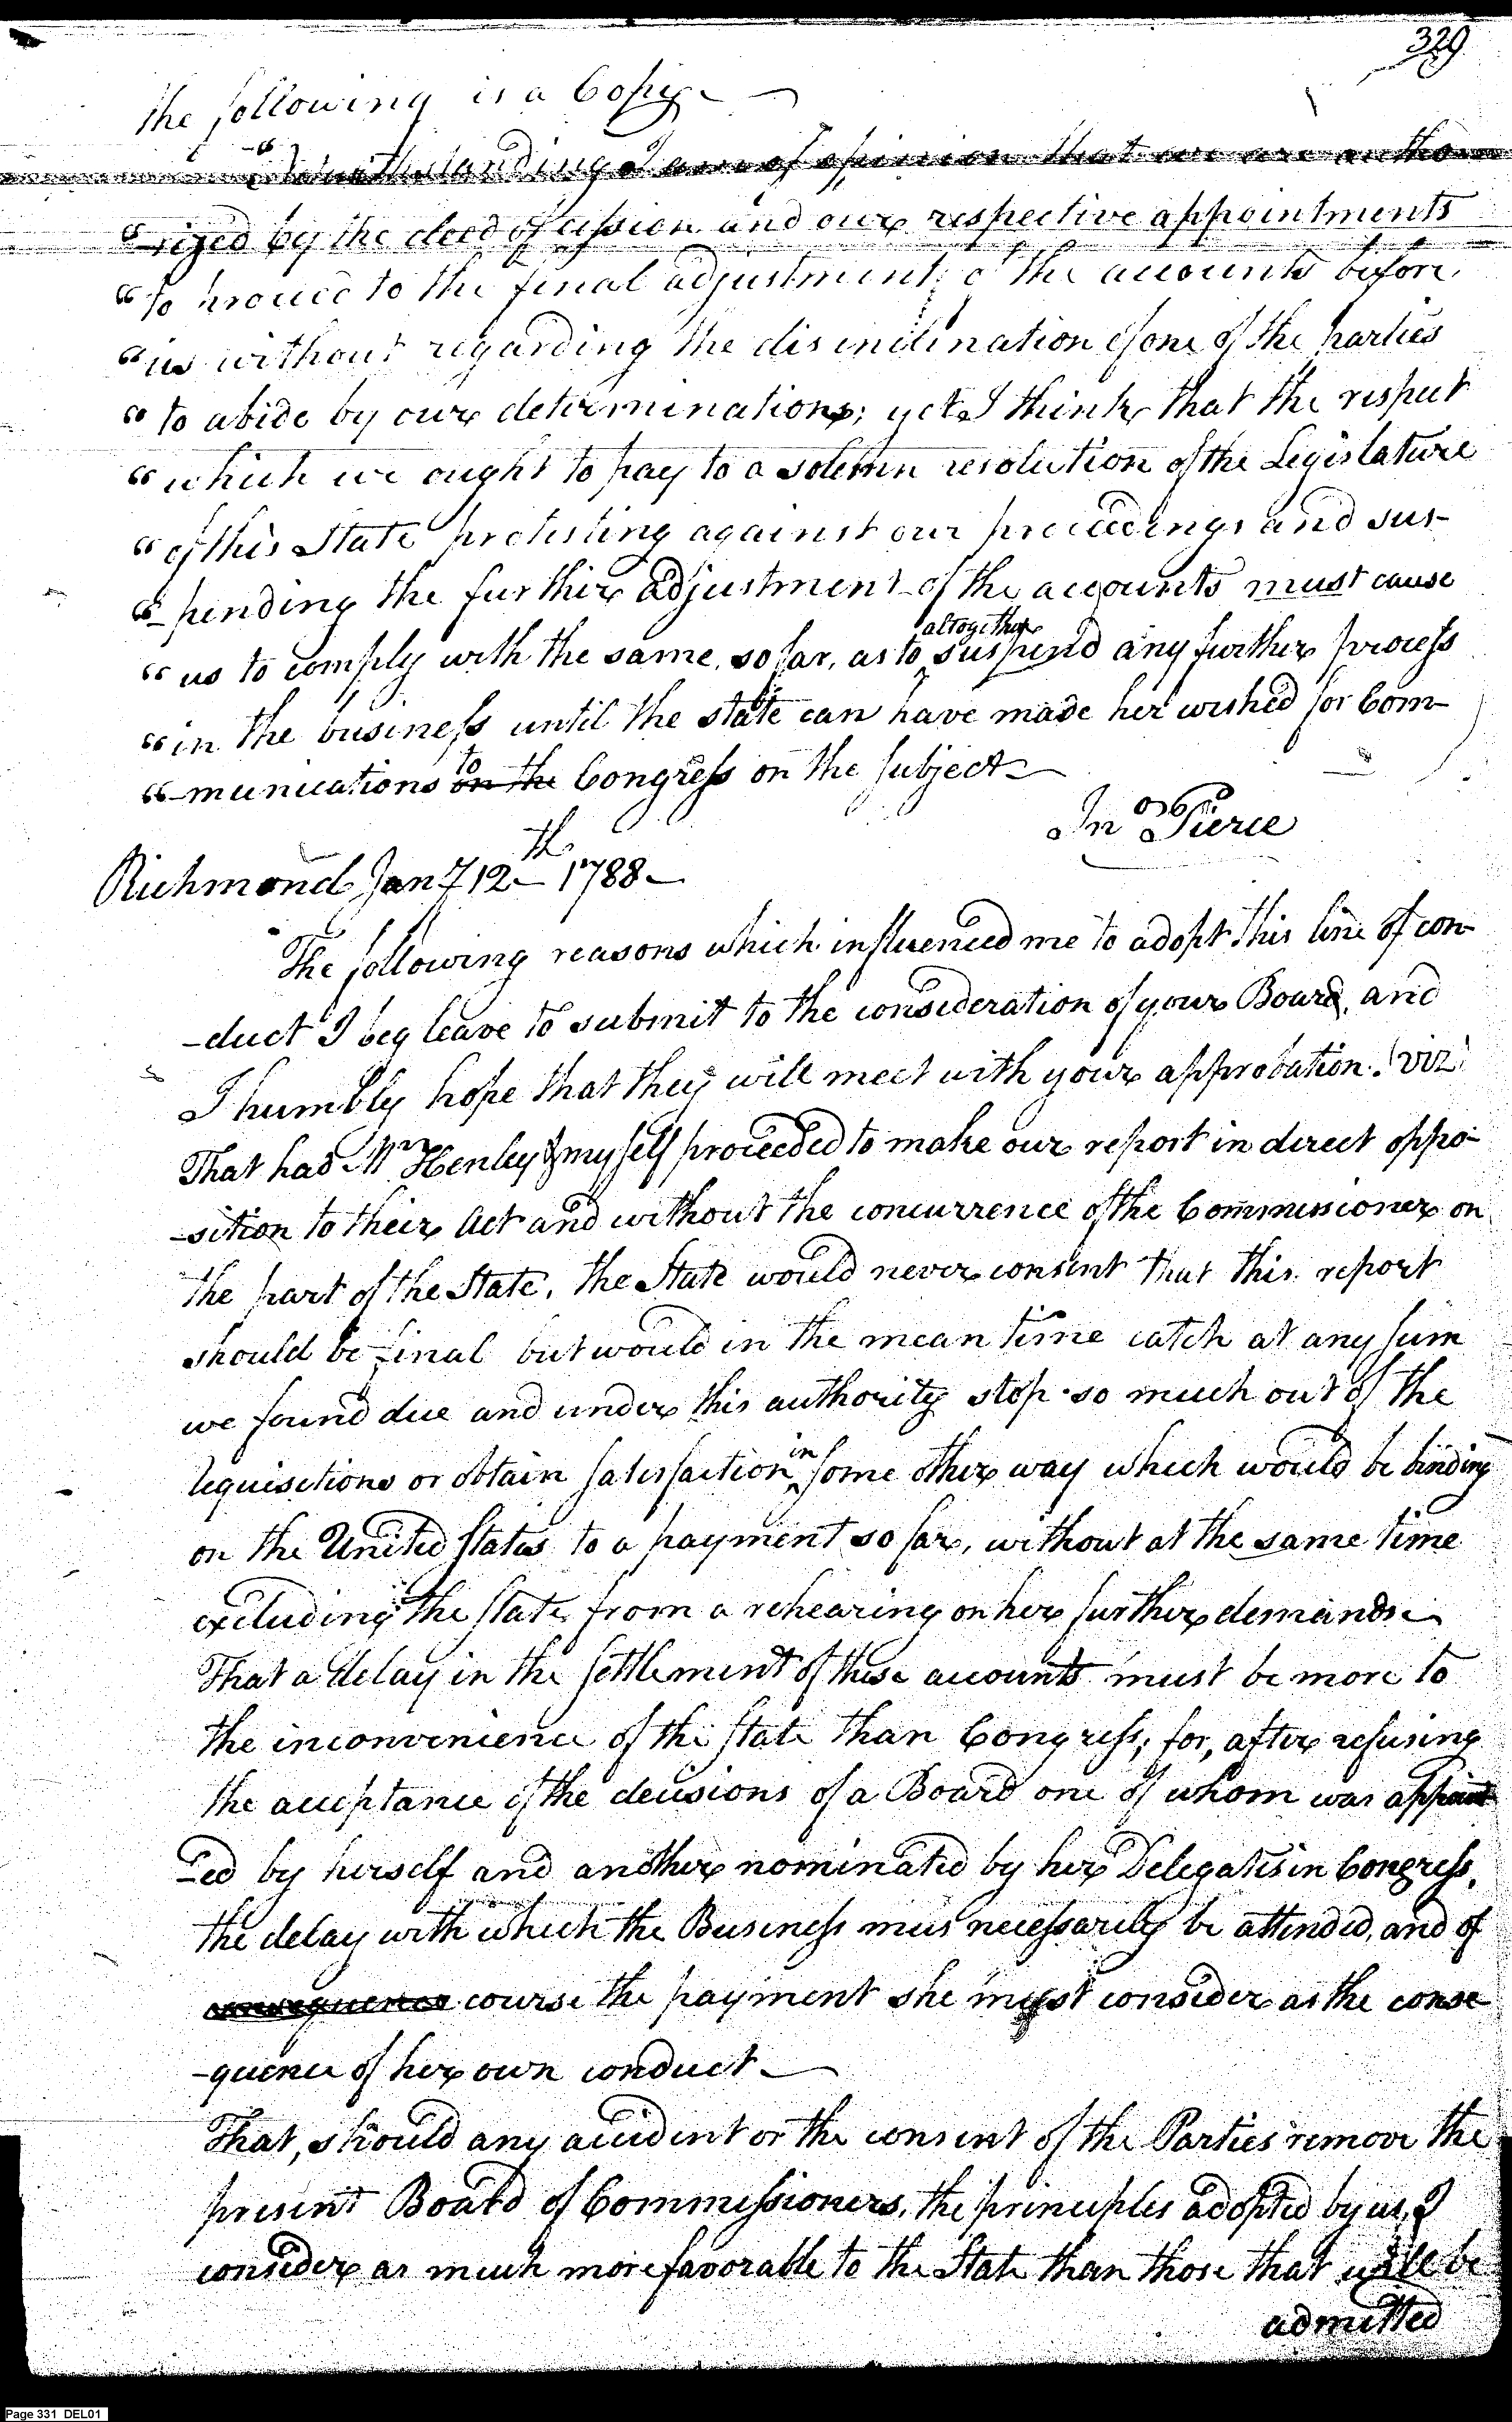 329
the following is a Copy
"Notwithstanding I am of opinion that we are autho
"-rized by the deed of cession and our respective appointments
"to proceed to the final adjustment of the accounts before
"us without regarding the disinclination of one of the parties
"to abide by our determinations; yet I think that the respect
"which we ought to pay to a solemn resolution of the Legislature
"of this State protesting against our proceedings and sus-
"-pending the further adjustment of the accounts must cause
altogether
"us to comply with the same, so far, as to suspend any further process
"in the business until the state can have made her wished for Com-
"-munications on the to Congress on the subject
Jno Pierce
Richmond Jany 12th 1788
The following reasons which influenced me to adopt this line of con-
-duct I beg leave to submit to the consideration of your Board, and
I humbly hope that they will meet with your approbation. (viz)
That had Mr Henley & myself proceeded to make our report in direct oppo-
-sition to their Act and without the concurrence of the Commissioner on
the part of the State, the State would never consent that this report
should be final but would in the mean time catch at any sum
we found due and under this authority stop so much out of the
requisitions or obtain satisfaction in some other way which would be binding
on the United States to a payment so far, without at the same time
excluding the State from a rehearing on her further demands
That a delay in the settlement of these accounts must be more to
the inconvenience of the State than Congress; for, after refusing
the acceptance of the decisions of a Board one of whom was appoint
-ed by herself and another nominated by her Delegates in Congress,
the delay with which the Business mus necessarily be attended, and of
consequence course the payment she must consider as the conse
-quence of her own conduct
That, should any accident or the consent of the Parties remove the
present Board of Commissioners, the principles adopted by us, I
consider as much more favorable to the State than those that will be
admitted
Page 331 DEL01